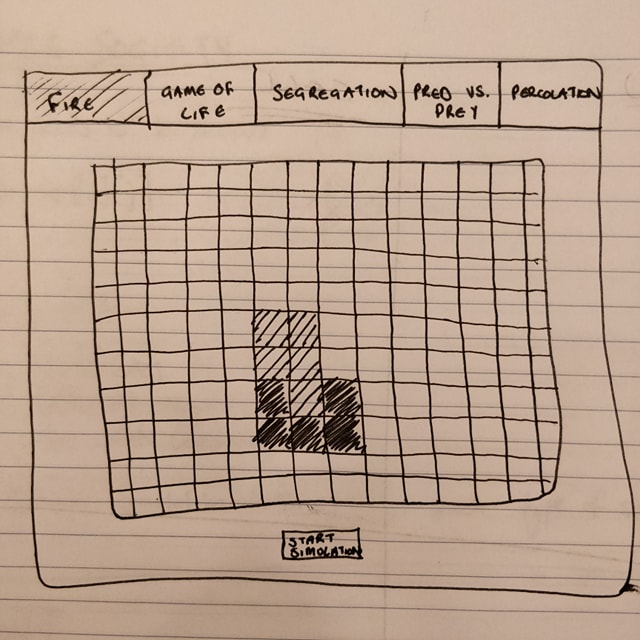 FIRE
GAME OF
LIFE
SEGREGATION
PRED VS.
PREY
PERCOLATION
START
SIMULATION